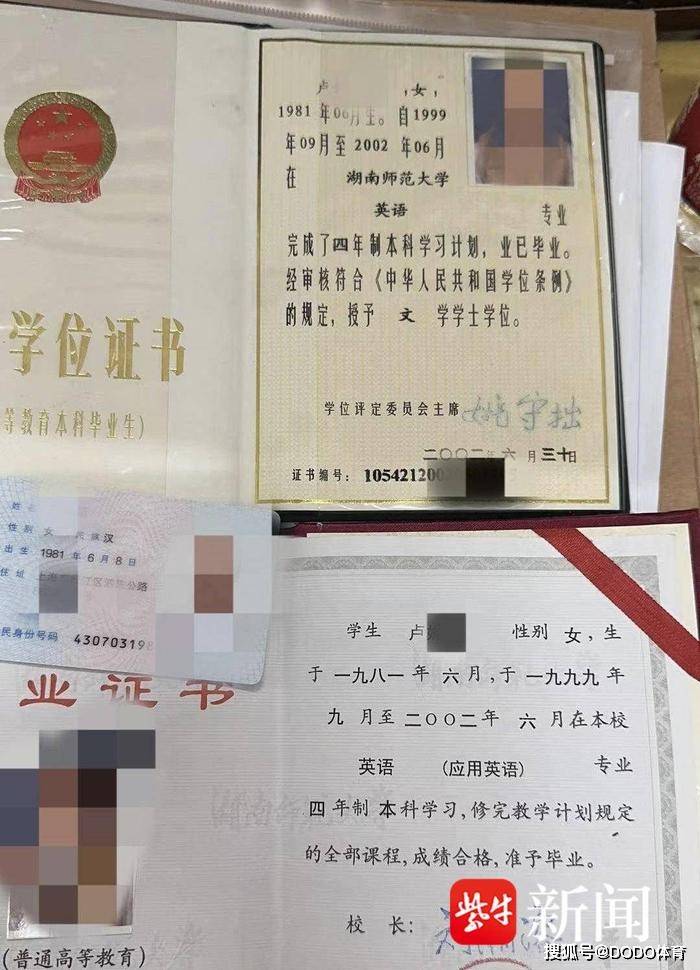 卢 ,女,
1981 年06月生。自1999
年09月至 2002 年06月
在 湖南师范大学
英语 专业
完成了四年制本科学习计划,业已毕业。
经审核符合《中华人民共和国学位条例》
的规定,授予 文 学学士学位。
学位评定委员会主席 姚守拙
二〇〇二年 六 月三十日
证书编号: 105421200
学位证书
等教育本科毕业生)
姓名
性别 女 民族汉
出生 1981 年 6 月 8 日
住址 上海 江区 公路
民身份号码 430703198
业证书
(普通高等教育)
学生 卢 性别 女,生
于一九八一年 六月,于一九九九年
九 月至二〇〇二年 六 月在本校
英语 (应用英语) 专业
四年制 本科学习,修完教学计划规定
的全部课程,成绩合格,准予毕业。
校 长:
紫牛 新闻
搜狐号@DODO体育